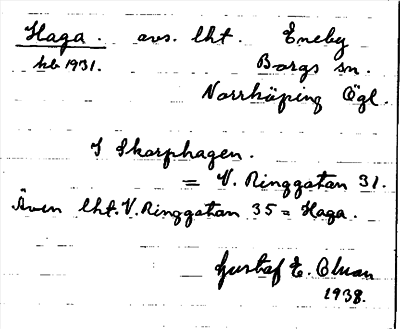 Haga. avs. lht. Eneby
kb 1931. Borgs sn.
Norrköping Ögl.
I Skarphagen.
= V. Ringgatan 31.
Även lht. V. Ringgatan 35 = Haga.
Gustaf E.
1938.